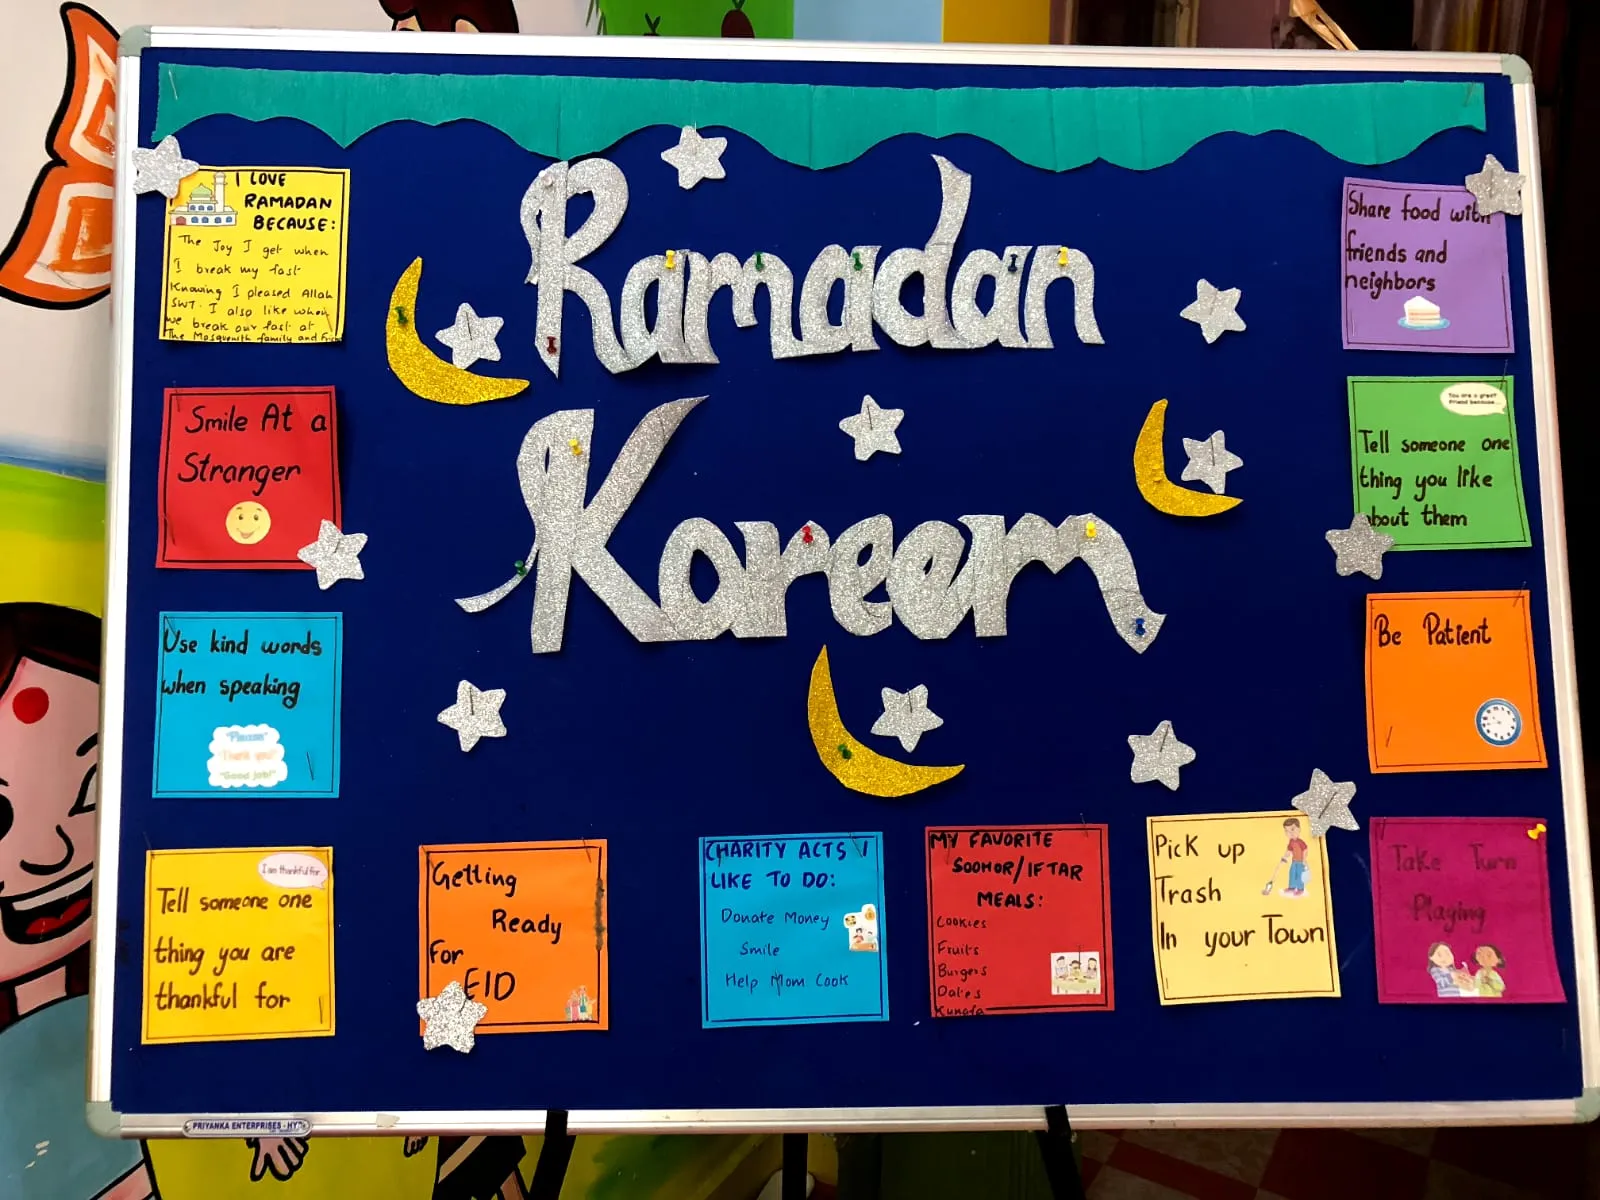 Ramadan
Kareem
I LOVE
RAMADAN
BECAUSE:
The Joy I get when
I break my fast
Knowing I pleased Allah
SWT. I also like when
we break our fast at
The Mosque with family and
Smile At a
Stranger
Use kind words
when speaking
"Please"
"Thank you"
"Good job!"
I am thankful for
Tell someone one
thing you are
thankful for
Getting
Ready
For
EID
CHARITY ACTS I
LIKE TO DO:
Donate Money
Smile
Help Mom Cook
MY FAVORITE
SOOHOR/IFTAR
MEALS:
Cookies
Fruits
Burgers
Dates
Kunafa
Pick up
Trash
In your Town
Take Turn
Playing
Be Patient
You are a great
friend because...
Tell someone one
thing you like
about them
Share food with
friends and
neighbors
PRIYANKA ENTERPRISES - HYD